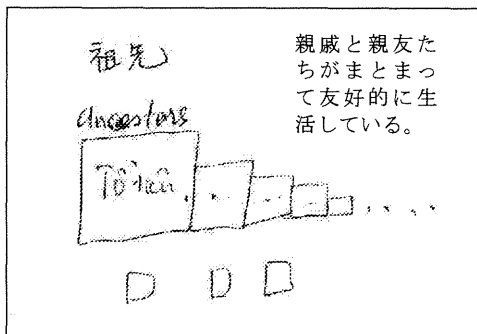 祖先
ancestors
親戚と親友た
ちがまとまっ
て友好的に生
活している。